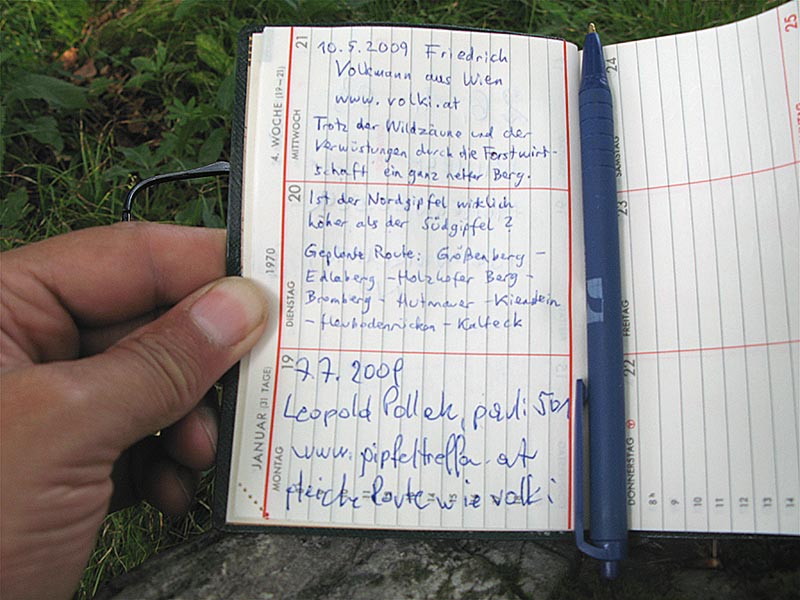 10.5.2009 Friedrich
Volkmann aus Wien
www.volki.at
Trotz der Wildzäune und der
Verwüstungen durch die Forstwirt-
schaft ein ganz netter Berg.
Ist der Nordgipfel wirklich
höher als der Südgipfel?
Geplante Route: Größenberg -
Edlaberg - Holzhofer Berg -
Bromberg - Hutmauer - Kienstein
- Heubodenrücken - Kalteck
7.7.2009
Leopold Pollak, pauli 501
www.gipfeltreffen.at
gleiche Route wie volki
21
4. WOCHE (19–21)
MITTWOCH
20
1970
DIENSTAG
19
JANUAR (31 TAGE)
MONTAG
14 15
25
24
SAMSTAG
23
FREITAG
22
DONNERSTAG
8h 9 10 11 12 13 14